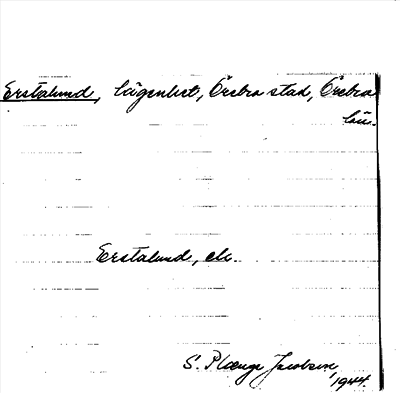 Erstalund, lägenhet, Örebro stad, Örebro
län.
Erstalund, eli.
S. Plænge Jacobson,
1944.